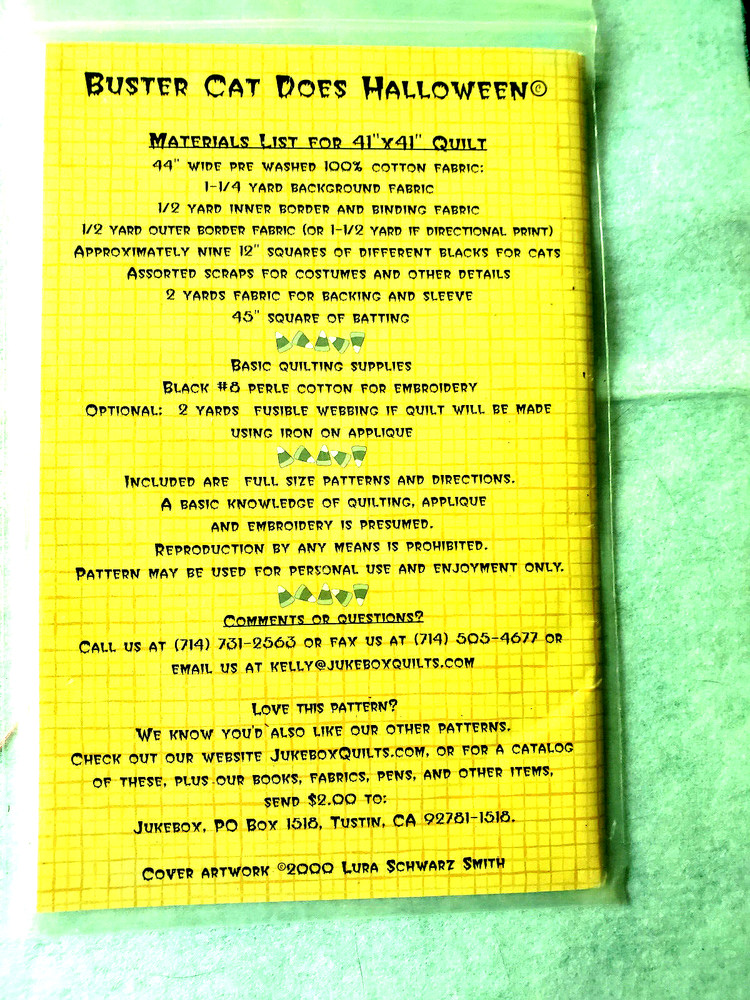 BUSTER CAT DOES HALLOWEEN©
MATERIALS LIST FOR 41"X41" QUILT
44" WIDE PRE WASHED 100% COTTON FABRIC:
1-1/4 YARD BACKGROUND FABRIC
1/2 YARD INNER BORDER AND BINDING FABRIC
1/2 YARD OUTER BORDER FABRIC (OR 1-1/2 YARD IF DIRECTIONAL PRINT)
APPROXIMATELY NINE 12" SQUARES OF DIFFERENT BLACKS FOR CATS
ASSORTED SCRAPS FOR COSTUMES AND OTHER DETAILS
2 YARDS FABRIC FOR BACKING AND SLEEVE
45" SQUARE OF BATTING
BASIC QUILTING SUPPLIES
BLACK #8 PERLE COTTON FOR EMBROIDERY
OPTIONAL: 2 YARDS FUSIBLE WEBBING IF QUILT WILL BE MADE
USING IRON ON APPLIQUE
INCLUDED ARE FULL SIZE PATTERNS AND DIRECTIONS.
A BASIC KNOWLEDGE OF QUILTING, APPLIQUE
AND EMBROIDERY IS PRESUMED.
REPRODUCTION BY ANY MEANS IS PROHIBITED.
PATTERN MAY BE USED FOR PERSONAL USE AND ENJOYMENT ONLY.
COMMENTS OR QUESTIONS?
CALL US AT (714) 731-2563 OR FAX US AT (714) 505-4677 OR
EMAIL US AT KELLY@JUKEBOXQUILTS.COM
LOVE THIS PATTERN?
WE KNOW YOU'D ALSO LIKE OUR OTHER PATTERNS.
CHECK OUT OUR WEBSITE JUKEBOXQUILTS.COM, OR FOR A CATALOG
OF THESE, PLUS OUR BOOKS, FABRICS, PENS, AND OTHER ITEMS,
SEND $2.00 TO:
JUKEBOX, PO BOX 1518, TUSTIN, CA 92781-1518.
COVER ARTWORK ©2000 LURA SCHWARZ SMITH